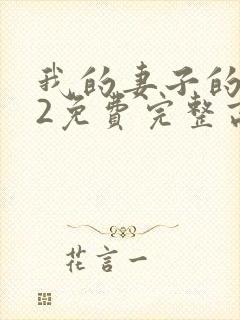 我的妻子的
2免費完整
花言一